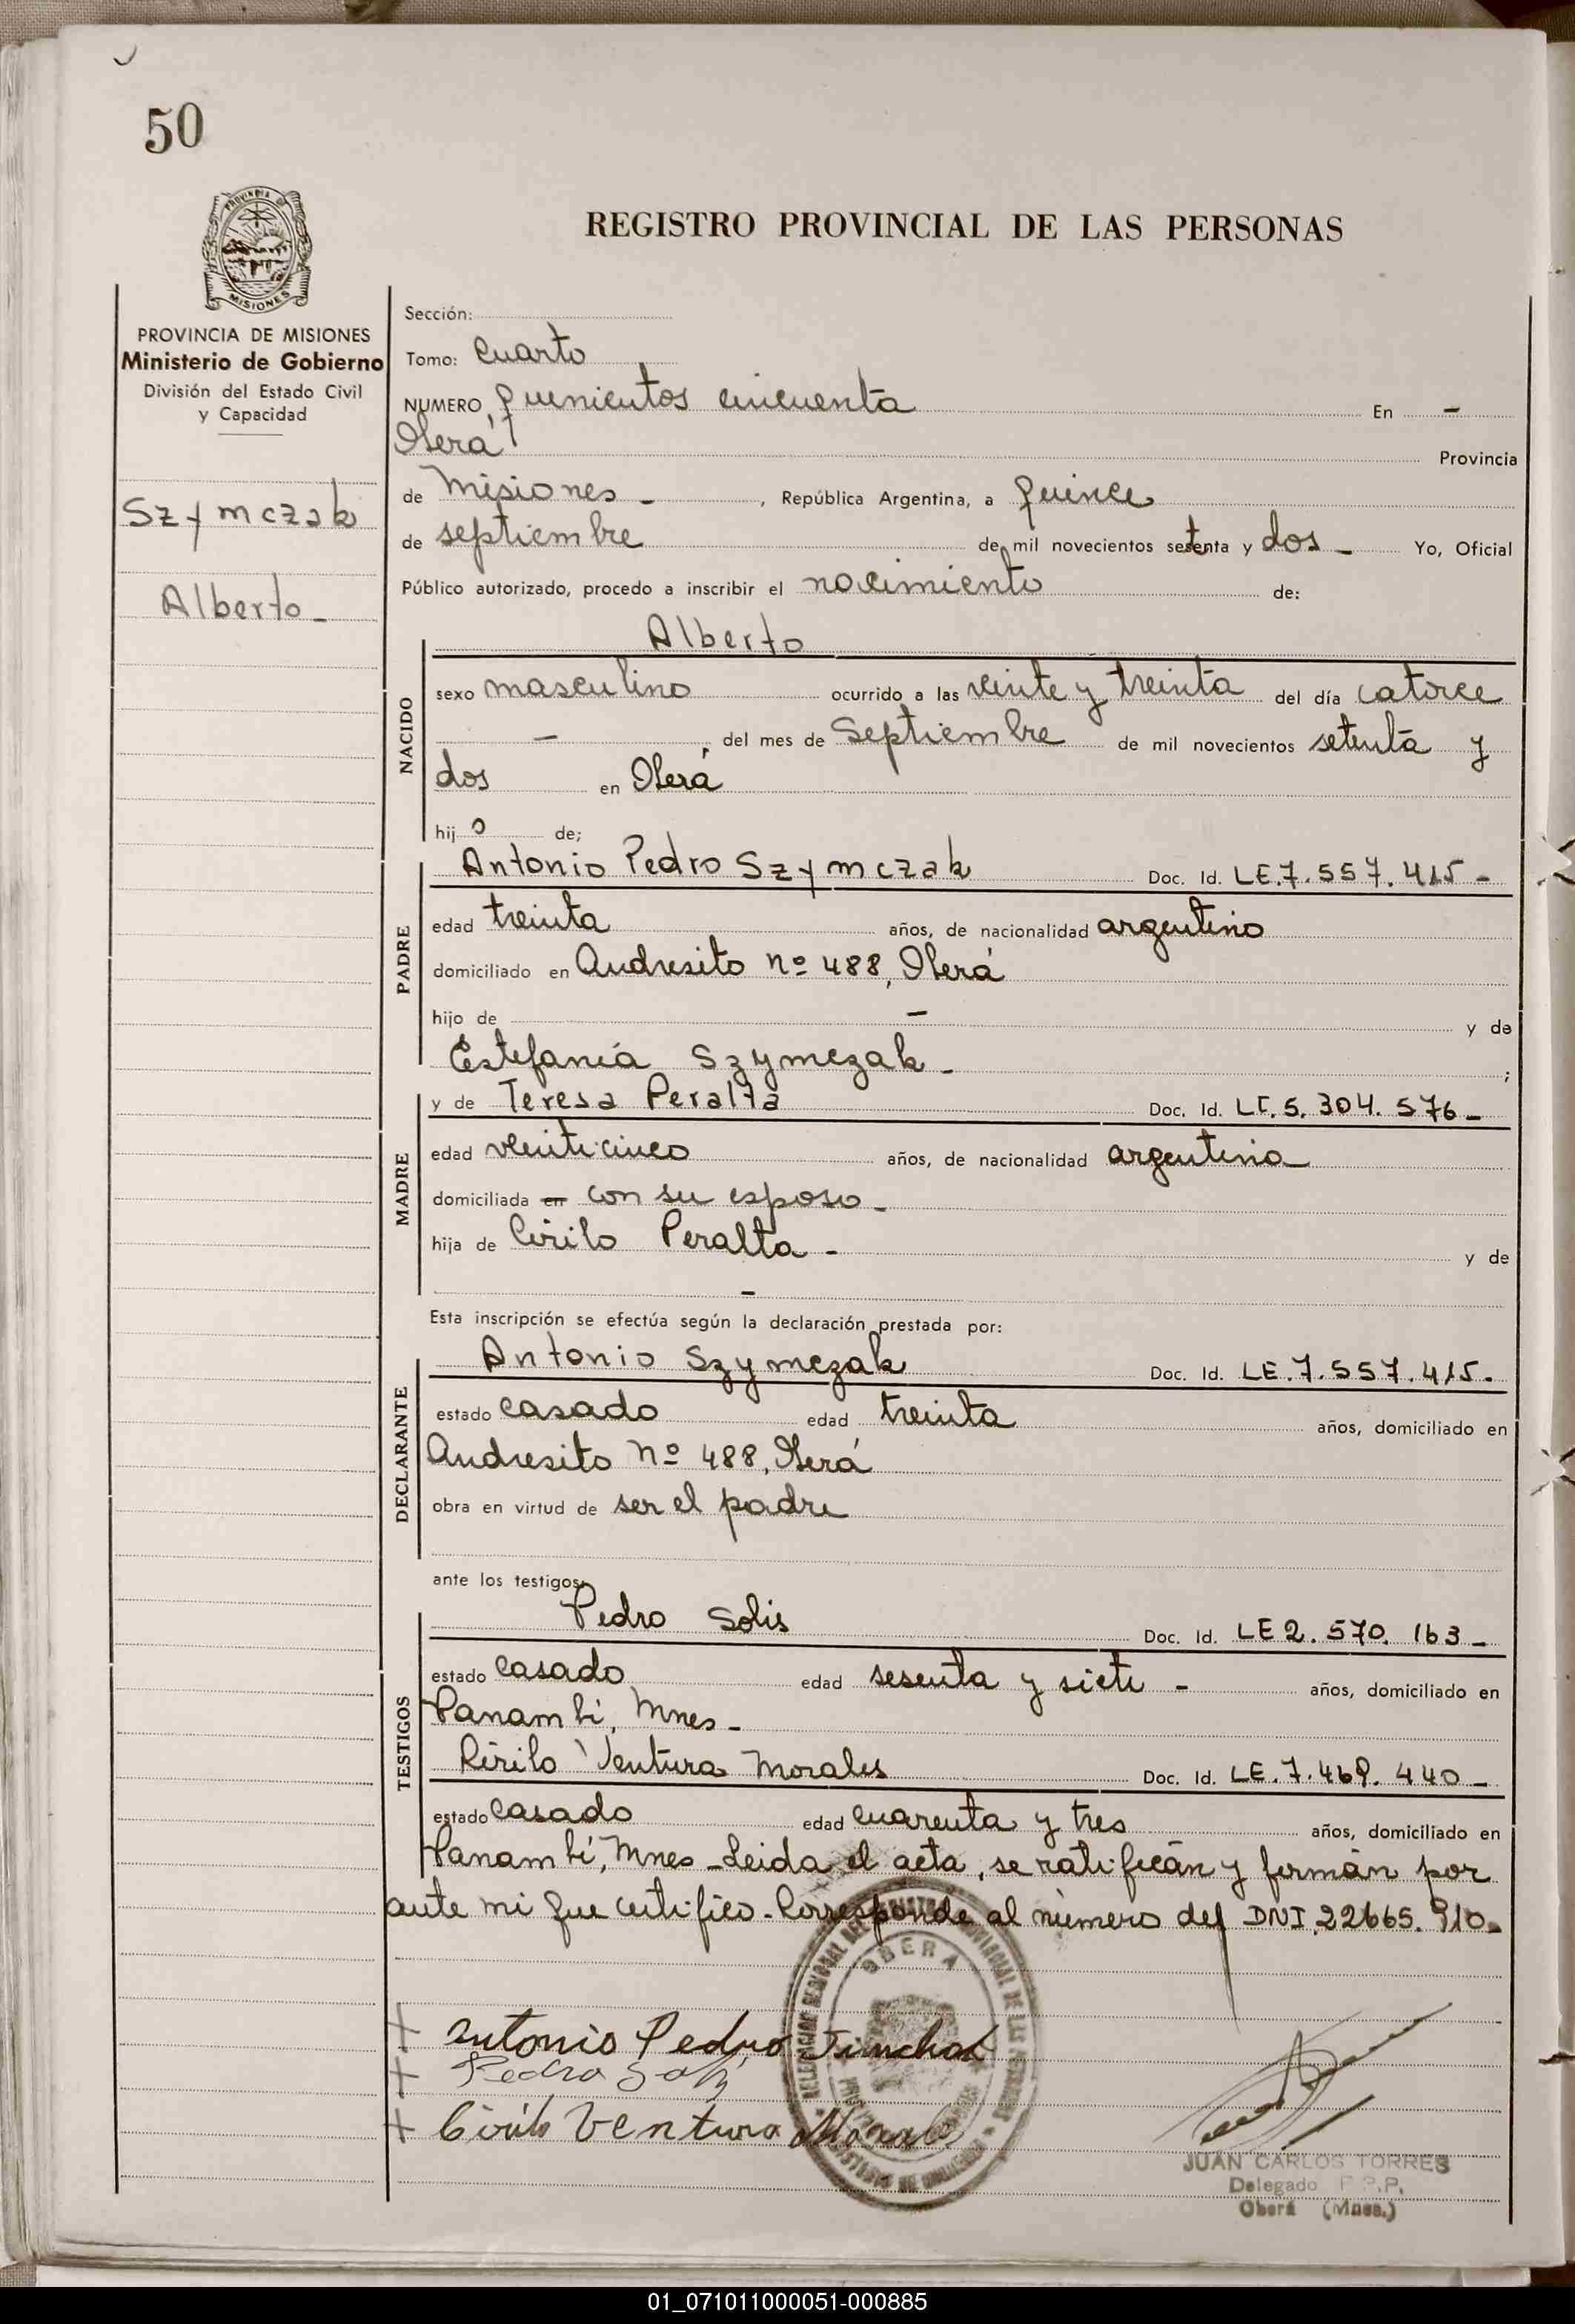 50
PROVINCIA DE MISIONES
Ministerio de Gobierno
División del Estado Civil
y Capacidad
Szymczak
Alberto_
REGISTRO PROVINCIAL DE LAS PERSONAS
Sección:
Tomo: Cuarto
NUMERO, quinientos cincuenta En -
Oberá Provincia
de Misiones - , República Argentina, a quince
de septiembre de mil novecientos setenta y dos - Yo, Oficial
Público autorizado, procedo a inscribir el nacimiento de:
Alberto
NACIDO
sexo masculino ocurrido a las veinte y treinta del día catorce
- , del mes de Septiembre de mil novecientos setenta y
dos en Oberá
hijo de;
PADRE
Antonio Pedro Szymczak Doc. Id. LE.7.557.415-
edad treinta años, de nacionalidad argentino
domiciliado en Andresito nº 488, Oberá
hijo de - y de
Estefanía Szymczak - ;
MADRE
y de Teresa Peralta Doc. Id. LC.5.304.576-
edad veinticinco años, de nacionalidad argentina
domiciliada en con su esposo -
hija de Cirilo Peralta - y de
-
Esta inscripción se efectúa según la declaración prestada por:
DECLARANTE
Antonio Szymczak Doc. Id. LE.7.557.415.
estado casado edad treinta años, domiciliado en
Andresito nº 488, Oberá
obra en virtud de ser el padre
ante los testigos:
TESTIGOS
Pedro Solis Doc. Id. LE 2.570.163-
estado casado edad sesenta y siete - años, domiciliado en
Panambí, Mnes-
Cirilo Ventura Morales Doc. Id. LE.7.469.440-
estado casado edad cuarenta y tres años, domiciliado en
Panambí, Mnes - Leida el acta, se ratificán y firmán por
ante mi que certifico - Corresponde al número del DNI 22665.910-
OBERA
+ Antonio Pedro
+ Pedro
+ Cirilo Ventura Morales
JUAN CARLOS TORRES
Delegado R.P.P.
Oberá (Mnes.)
01_071011000051-000885